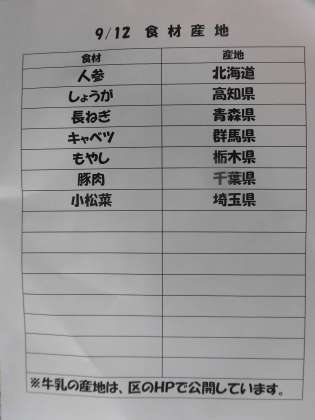 9/12 食材産地
食材 産地
人参 北海道
しょうが 高知県
長ねぎ 青森県
キャベツ 群馬県
もやし 栃木県
豚肉 千葉県
小松菜 埼玉県
※牛乳の産地は、区のHPで公開しています。